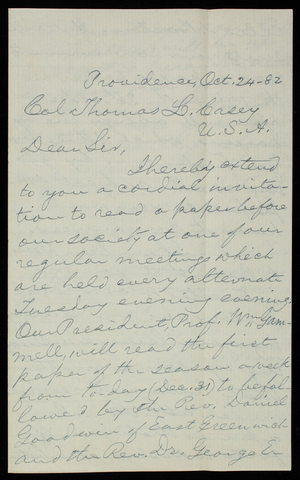 Providence, Oct. 24-82
Col Thomas L. Casey
U. S. A.
Dear Sir,
I hereby extend
to you a cordial invita-
tion to read a paper before
our society at one of our
regular meetings which
are held every alternate
Tuesday evening evening.
Our President, Prof. Wm Gam-
mell, will read the first
paper of the season a week
from to-day (Dec. 31) to be fol
lowed by the Rev. Daniel
Goodwin of East Greenwich
and the Rev. Dr. George E.